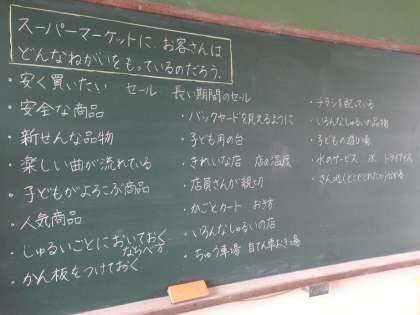 スーパーマーケットに、お客さんは
どんなねがいをもっているのだろう。
・安く買いたい　セール　長い期間のセール
・安全な商品
・新せんな品物
・楽しい曲が流れている
・子どもがよろこぶ商品
・人気商品
・しゅるいごとにおいておく
ならべ方
・かん板をつけておく
・バックヤードを見えるように
・子ども用の台
・きれいな店　店の温度
・店員さんが親切
・かごとカート　おき方
・いろんなしゅるいの店
・ちゅう車場　自てん車おき場
・チラシを配っている
・いろんなしゅるいの品物
・子どもの遊び場
・水のサービス　氷　ドライアイス
・さん地(どこでとれたか)が分かる